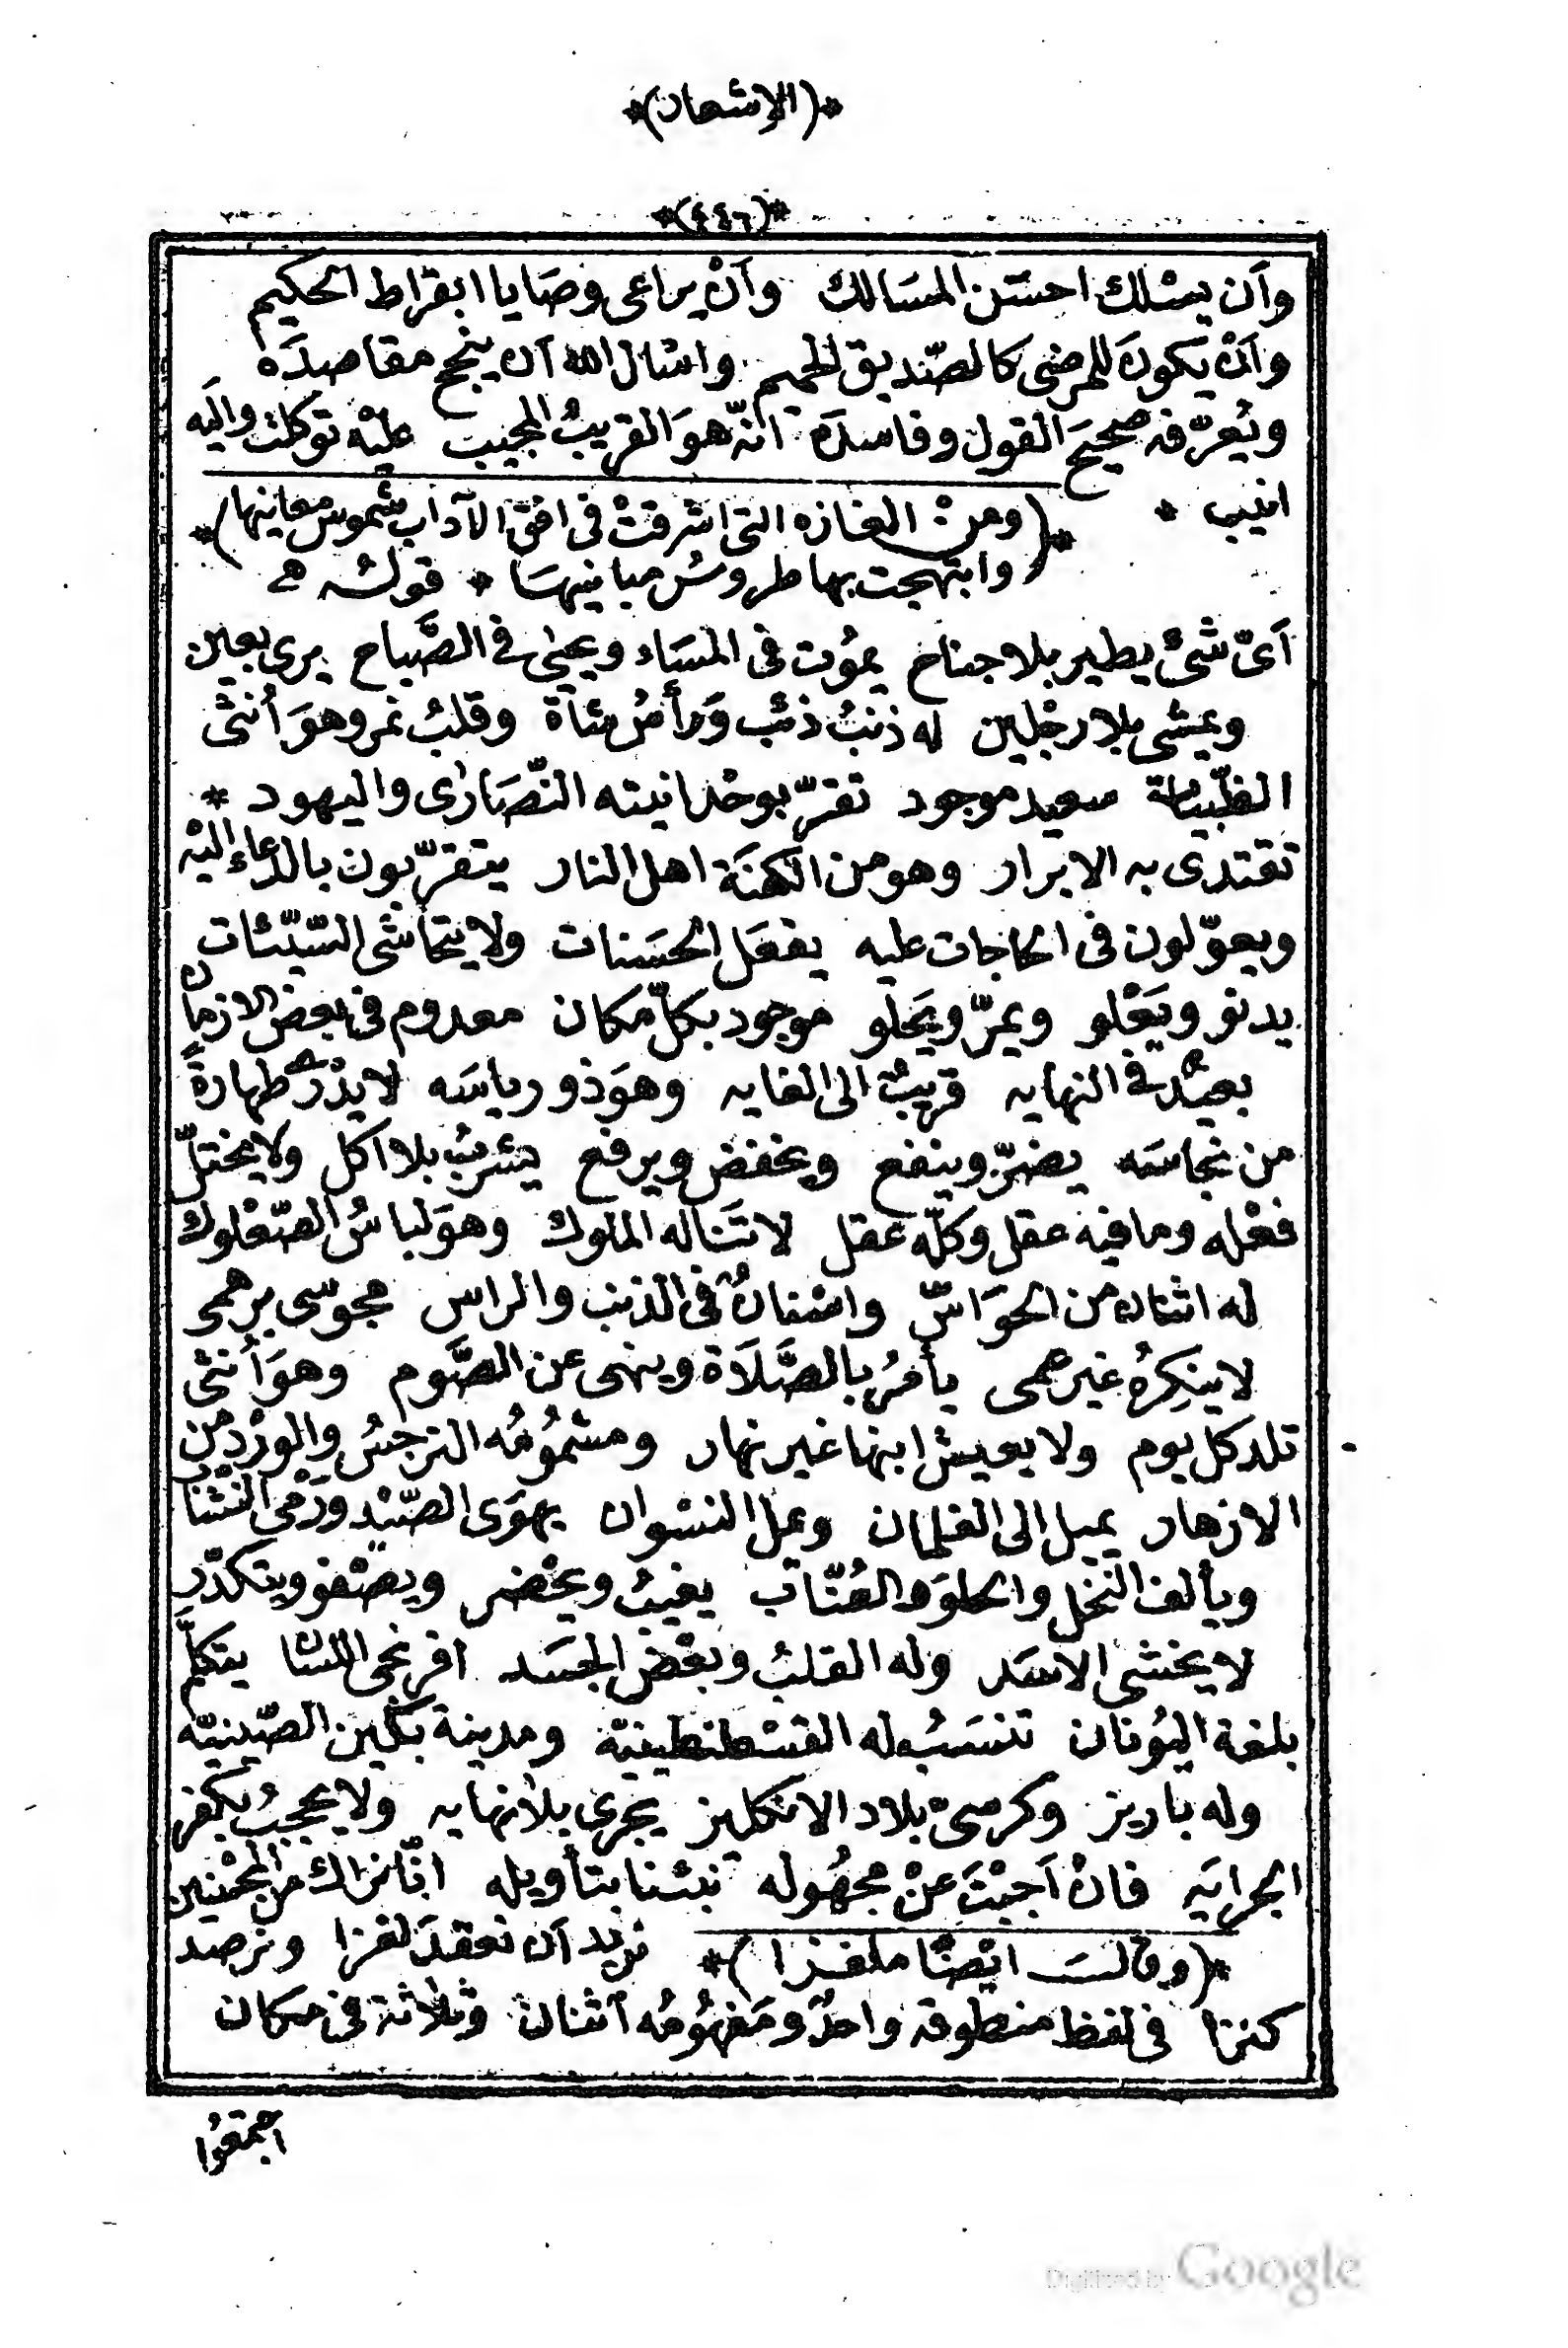 *(الاشعار)*
*(٤٤٦)*
وأن يسلك احسَن المسَالك وأنْ يراعى وصَايا ابقراط الحكيم
وأنْ يكونَ للمرضى كالصّديق الحميم واسْال الله أن ينجح مقاصدَه
ويُعرّفه صحيحَ القول وفاسدَه انّه هوَ القريبُ المجيب عليْه توكلت واليَه
انيب *
*(ومنْ الغازه التى اشرقتْ فى افق الآداب شموس معاينها)*
وابتهجت بها طروسُ مبانيهسَا * قولُه
أىّ شىْئ يطير بلا جناح يموُت فى المسَاء ويحيٰى فى الصَّباح يرى بعين
ويمشى بلا رجْلين له ذنبُ ذئب وَرأسُ شاة وقلبُ نمر وهوَ أُنثى
الظّبياة سعيد موجود تقرّ بوحْدانيته النّصَارٰى واليهود *
تقتدى به الابرار وهو من الكهنَة اهل النار يتقرّبون بالدّعاءِ اليْه
ويعوّلون فى الحاجات عليه يفعَل الحسَنات ولا يتحاشى السّيّئات
يدنو ويَعْلو ويمرّ ويَحلو موجود بكلّ مكان معدوم فى بعض الازمان
بعيدٌ فى النهايه قريبٌ الى الغايه وهوَ ذو رياسَه لا يدْرك طهارةً
من نجاسَه يضرّ وينفع ويخفض ويرفع يشربُ بلا اكل ولا يختلّ
فعْله وما فيه عقل وكلّه عقل لا تَناله الملوك وهوَ لباسُ الصّعْلوك
له اثنان من الحوَاسّ واسْنانٌ فى الذنب والراس مجوسى برهمى
لا ينكِرهُ غير عمى يأمُر بالصَّلَاة وينهى عن الصَّوم وهوَ أُنثى
تلد كل يوم ولا يعيش ابنها غير نهار ومشمُومُه النرجسُ والورْد من
الازهار يميل الى الغلمان وعمل النسْوان يهوَى الصّيْد ورَمْى النشّاب
ويألف النخل والحلوَ والعُنّاب يغيبُ ويحْضر ويصْفو ويتكدّر
لا يخشى الاسَد وله القلبُ وبعْض الجسَد افرنجى اللسان يتكلّم
بلغة اليُونان تنسَبُ له القسْطنطينيّة ومدينة بكّين الصّينيّة
وله باريز وكرسىّ بلاد الانكليز يجرى بلا نهايه ولا يعجبُ بكفر
الجرايَه فانْ أجبْتَ عنْ مجهُوله نبئنا بتأويله انّا نراك من المحْسنين
*(وقالَ ايْضًا ملغزا)* نريد أن نعقدَ لغزا ونرصد
كنزا فى لفظ منطوقه واحدٌ ومَفهُومُه اثنان وثلاثة فى مكان
اجْتمعُوا
Digitized by Google